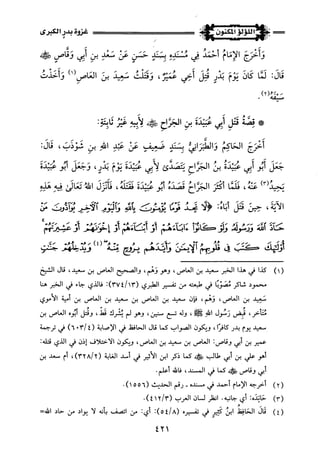 اللؤلؤ المكنون
غزوة بدر الكبرى
وَأَخْرَجَ الإِمَامُ أَحْمَدُ فِي مُسْنَدِهِ بِسَنَدٍ حَسَنٍ عَنْ سَعْدِ بنِ أَبِي وَقَّاصٍ ﷺ
قَالَ: لَمَّا كَانَ يَوْمَ بَدْرٍ قُتِلَ أَخِي عُمَيْرٌ، وَقَتَلْتُ سَعِيدَ بنَ العَاصِ(١) وَأَخَذْتُ
سَيْفَهُ(٢).
* قِصَّةُ قَتْلِ أَبِي عُبَيْدَةَ بنِ الجَرَّاحِ لِأَبِيهِ غَيْرُ ثَابِتَةٍ:
أَخْرَجَ الحَاكِمُ وَالطَّبَرَانِيُّ بِسَنَدٍ ضَعِيفٍ عَنْ عَبْدِ اللهِ بنِ شَوْذَبَ، قَالَ:
جَعَلَ أَبُو أَبِي عُبَيْدَةَ بنُ الجَرَّاحِ يَتَصَدَّى لِأَبِي عُبَيْدَةَ يَوْمَ بَدْرٍ، وَجَعَلَ أَبُو عُبَيْدَةَ
يَحِيدُ(٣) عَنْهُ، فَلَمَّا أَكْثَرَ الجَرَّاحُ قَصَدَهُ أَبُو عُبَيْدَةَ فَقَتَلَهُ، فَأَنْزَلَ اللهُ تَعَالَى فِيهِ هَذِهِ
الآيَةَ، حِينَ قَتَلَ أَبَاهُ: ﴿لَّا تَجِدُ قَوْمًا يُؤْمِنُونَ بِاللَّهِ وَالْيَوْمِ الْآخِرِ يُوَادُّونَ مَنْ
حَادَّ اللَّهَ وَرَسُولَهُ وَلَوْ كَانُوا آبَاءَهُمْ أَوْ أَبْنَاءَهُمْ أَوْ إِخْوَانَهُمْ أَوْ عَشِيرَتَهُمْ
أُولَئِكَ كَتَبَ فِي قُلُوبِهِمُ الْإِيمَانَ وَأَيَّدَهُم بِرُوحٍ مِّنْهُ(٤) وَيُدْخِلُهُمْ جَنَّاتٍ
(١) كذا في هذا الخبر سعيد بن العاص، وهو وَهَم، والصحيح العاص بن سعيد، قال الشيخ
محمود شاكر مُصَوِّبًا في طبعته من تفسير الطبري (٣٧٤/١٣): فالذي جاء في الخبر هنا
سَعِيد بن العاص، وَهَم، فإن سعيد بن العاص بن سعيد بن العاص بن أمية الأموي
مُتأخر، قُبض رَسُول الله ﷺ، وله تسع سنين، وهو لم يُشرك قَط، وقُتل أبوه العاص بن
سعيد يوم بدر كافرًا، ويكون الصواب كما قال الحافظ في الإصابة (٦٠٣/٤) في ترجمة
عمير بن أبي وقاص: العاص بن سعيد بن العاص، ويكون الاختلاف إذن في الذي قتله:
أهو علي بن أبي طالب كما ذكر ابن الأثير في أسد الغابة (٣٢٨/٢)، أم سعد بن
أبي وقاص كما في المسند، فالله أعلم.
(٢) أخرجه الإمام أحمد في مسنده - رقم الحديث (١٥٥٦).
(٣) حَايَدَه: أي جانبه. انظر لسان العرب (٤١٢/٣).
(٤) قَالَ الحَافِظُ ابنُ كَثِيرٍ في تفسيره (٥٤/٨): أي: من اتصف بأنه لا يواد من حاد الله=
٤٢١